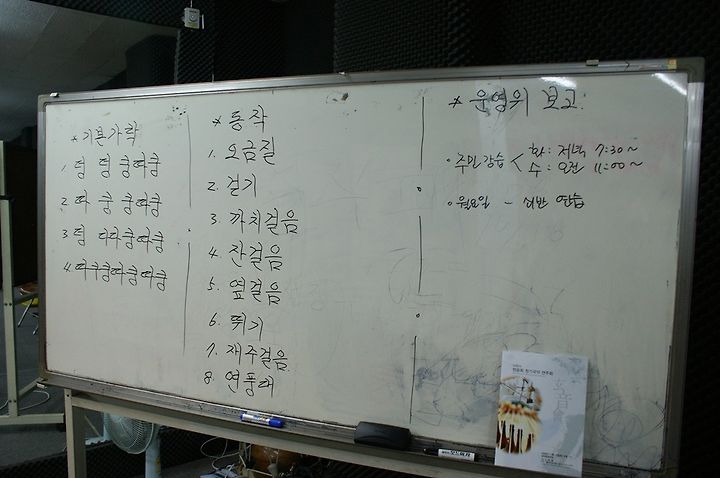 * 기본가락
1. 덩 덩 쿵따쿵
2. 따 쿵 쿵따쿵
3. 덩 다다쿵따쿵
4. 따쿵쿵따쿵따쿵
* 동작
1. 오금질
2. 걷기
3. 까치걸음
4. 잔걸음
5. 옆걸음
6. 뛰기
7. 재주걸음
8. 연풍대
* 운영위 보고.
• 주민강습 < 화: 저녁 7:30~
수: 오전 11:00~
• 월요일 - 쇠반 연습